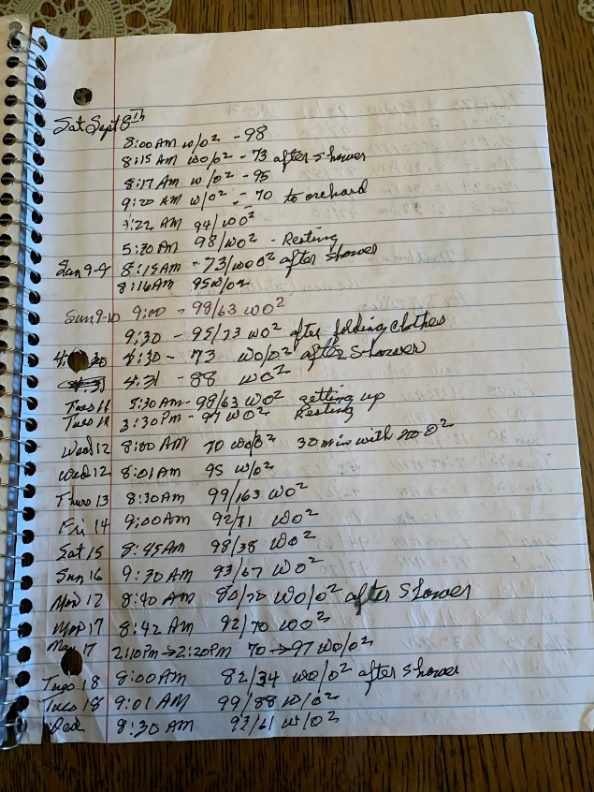 Sat Sept 8th
8:00 AM w/o² - 98
8:15 AM wo/o² - 73 after shower
8:17 AM w/o² - 95
9:20 AM w/o² - 70 to orchard
9:22 AM 94/ wo²
5:30 PM 98/wo² - Resting
Sun 9-9 8:15AM - 73/woo² after shower
8:16AM 95 w/o²
Sun 9-10 9:00 - 99/63 wo²
9:30 - 95/73 wo² after folding clothes
4:30 - 73 wo/o² after shower
4:31 - 88 wo²
Tues 11 5:30AM - 98/63 wo² getting up
Tues 11 3:30PM - 97 wo² Resting
Wed 12 8:00 AM 70 wo/o² 30 min with no O²
Wed 12 8:01AM 95 w/o²
Thurs 13 8:30AM 99/163 wo²
Fri 14 9:00AM 92/71 wo²
Sat 15 8:45AM 98/38 wo²
Sun 16 9:30 AM 93/67 wo²
Mon 17 8:40 AM 80/70 wo/o² after shower
Mon 17 8:42 AM 92/70 wo²
17 2:10PM → 2:20PM 70 → 97 wo/o²
Tues 18 9:00AM 82/34 wo/o² after shower
Tues 18 9:01 AM 99/88 w/o²
Wed 8:30 AM 93/61 w/o²